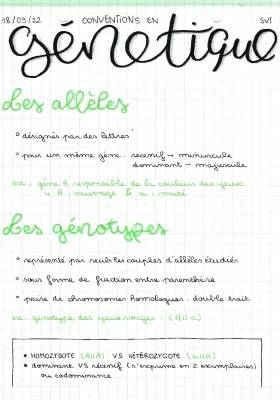 18/09/22 CONVENTIONS EN SVT
génétique
Les allèles
° désignés par des lettres
° pour un même gène : récessif → minuscule
dominant → majuscule
ex : gène A responsable de la couleur des yeux
↳ A : sauvage & a : muté
Les génotypes
° représenté par seuls les couples d'allèles étudiés
° sous forme de fraction entre parenthèse
° paire de chromosomes homologues : double trait
ex : génotype des yeux rouges : (A//a)
• HOMOZYGOTE (A//A) VS HÉTÉROZYGOTE (a//A)
• dominant VS récessif (s'exprime en 2 exemplaires)
ou codominance